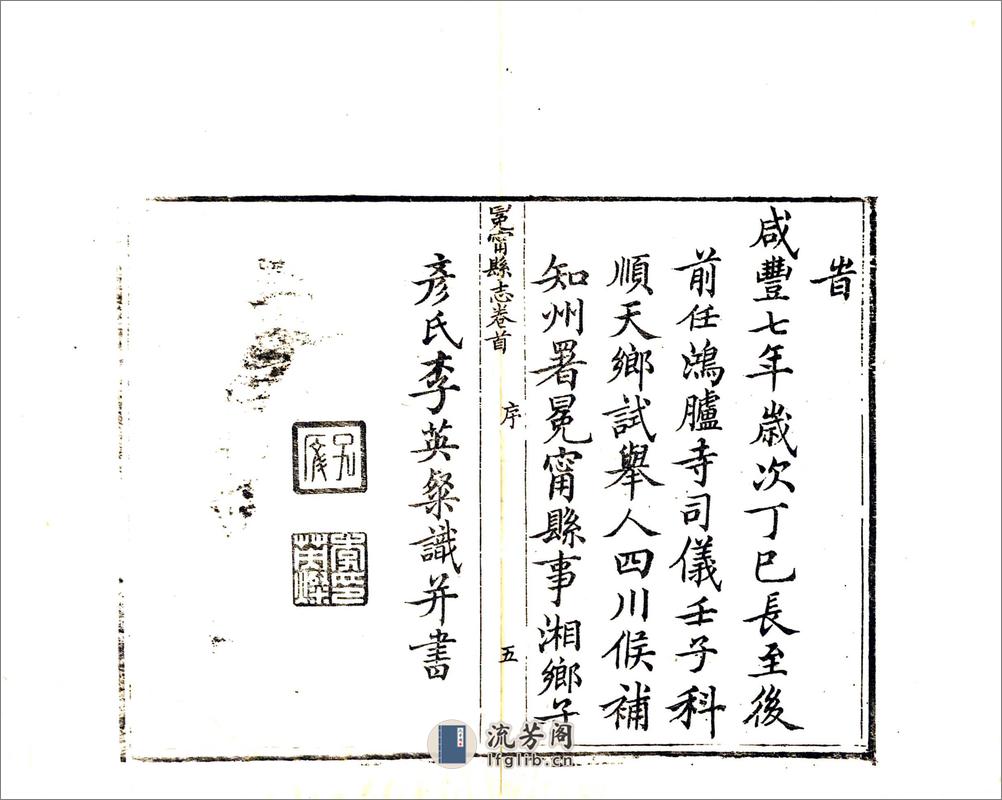 旹
咸豐七年歲次丁巳長至後
前任鴻臚寺司儀壬子科
順天鄉試舉人四川候補
知州署冕甯縣事湘鄉子
冕甯縣志卷首 序 五
彥氏李英粲識并書
子彥
李英粲印
流芳阁
lfglib.cn